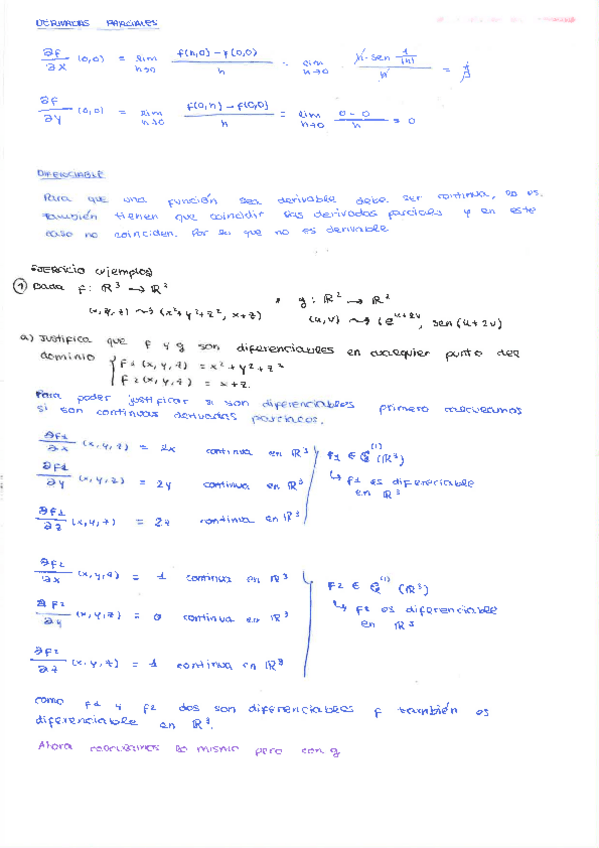 DERIVADAS PARCIALES
∂f/∂x (0,0) = lim h→0 (f(h,0) - f(0,0))/h = lim h→0 (h · sen 1/|h|)/h = ∄
∂f/∂y (0,0) = lim h→0 (f(0,h) - f(0,0))/h = lim h→0 (0-0)/h = 0
DIFERENCIABLE
Para que una función sea derivable debe ser continua, es.
también tienen que coincidir las derivadas parciales y en este
caso no coinciden. Por lo que no es derivable
EJERCICIO (ejemplos)
① Dada f: ℝ³ → ℝ² , g: ℝ² → ℝ²
(x,y,z) ⇝ (x²+y²+z², x+z) (u,v) ⇝ (e^(u+2v), sen(u+2v))
a) Justifica que f y g son diferenciables en cualquier punto del
dominio { f1(x,y,z) = x²+y²+z²
f2(x,y,z) = x+z.
Para poder justificar si son diferenciables primero calculamos
si son continuas derivadas parciales.
∂f1/∂x (x,y,z) = 2x continua en ℝ³ f1 ∈ C^(1) (ℝ³)
∂f1/∂y (x,y,z) = 2y continua en ℝ³ ↳ f1 es diferenciable en ℝ³
∂f1/∂z (x,y,z) = 2z continua en ℝ³
∂f2/∂x (x,y,z) = 1 continua en ℝ³ f2 ∈ C^(1) (ℝ³)
∂f2/∂y (x,y,z) = 0 continua en ℝ³ ↳ f2 es diferenciable en ℝ³
∂f2/∂z (x,y,z) = 1 continua en ℝ³
como f1 y f2 dos son diferenciables f también es
diferenciable en ℝ³.
Ahora realizamos lo mismo pero con g